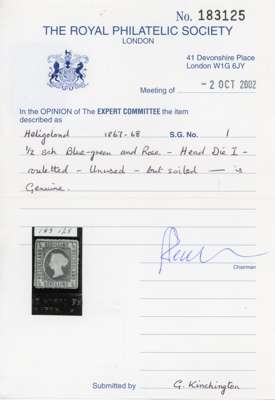 No. 183125
THE ROYAL PHILATELIC SOCIETY
LONDON
41 Devonshire Place
London W1G 6JY
Meeting of - 2 OCT 2002
In the OPINION of The EXPERT COMMITTEE the item
described as
Heligoland 1867-68 S.G. No. 1
1/2 sch Blue-green and Rose - Head Die I -
rouletted - Unused - but soiled — is
Genuine.
183 125
SCHILLING
Chairman
Submitted by G. Kinchington